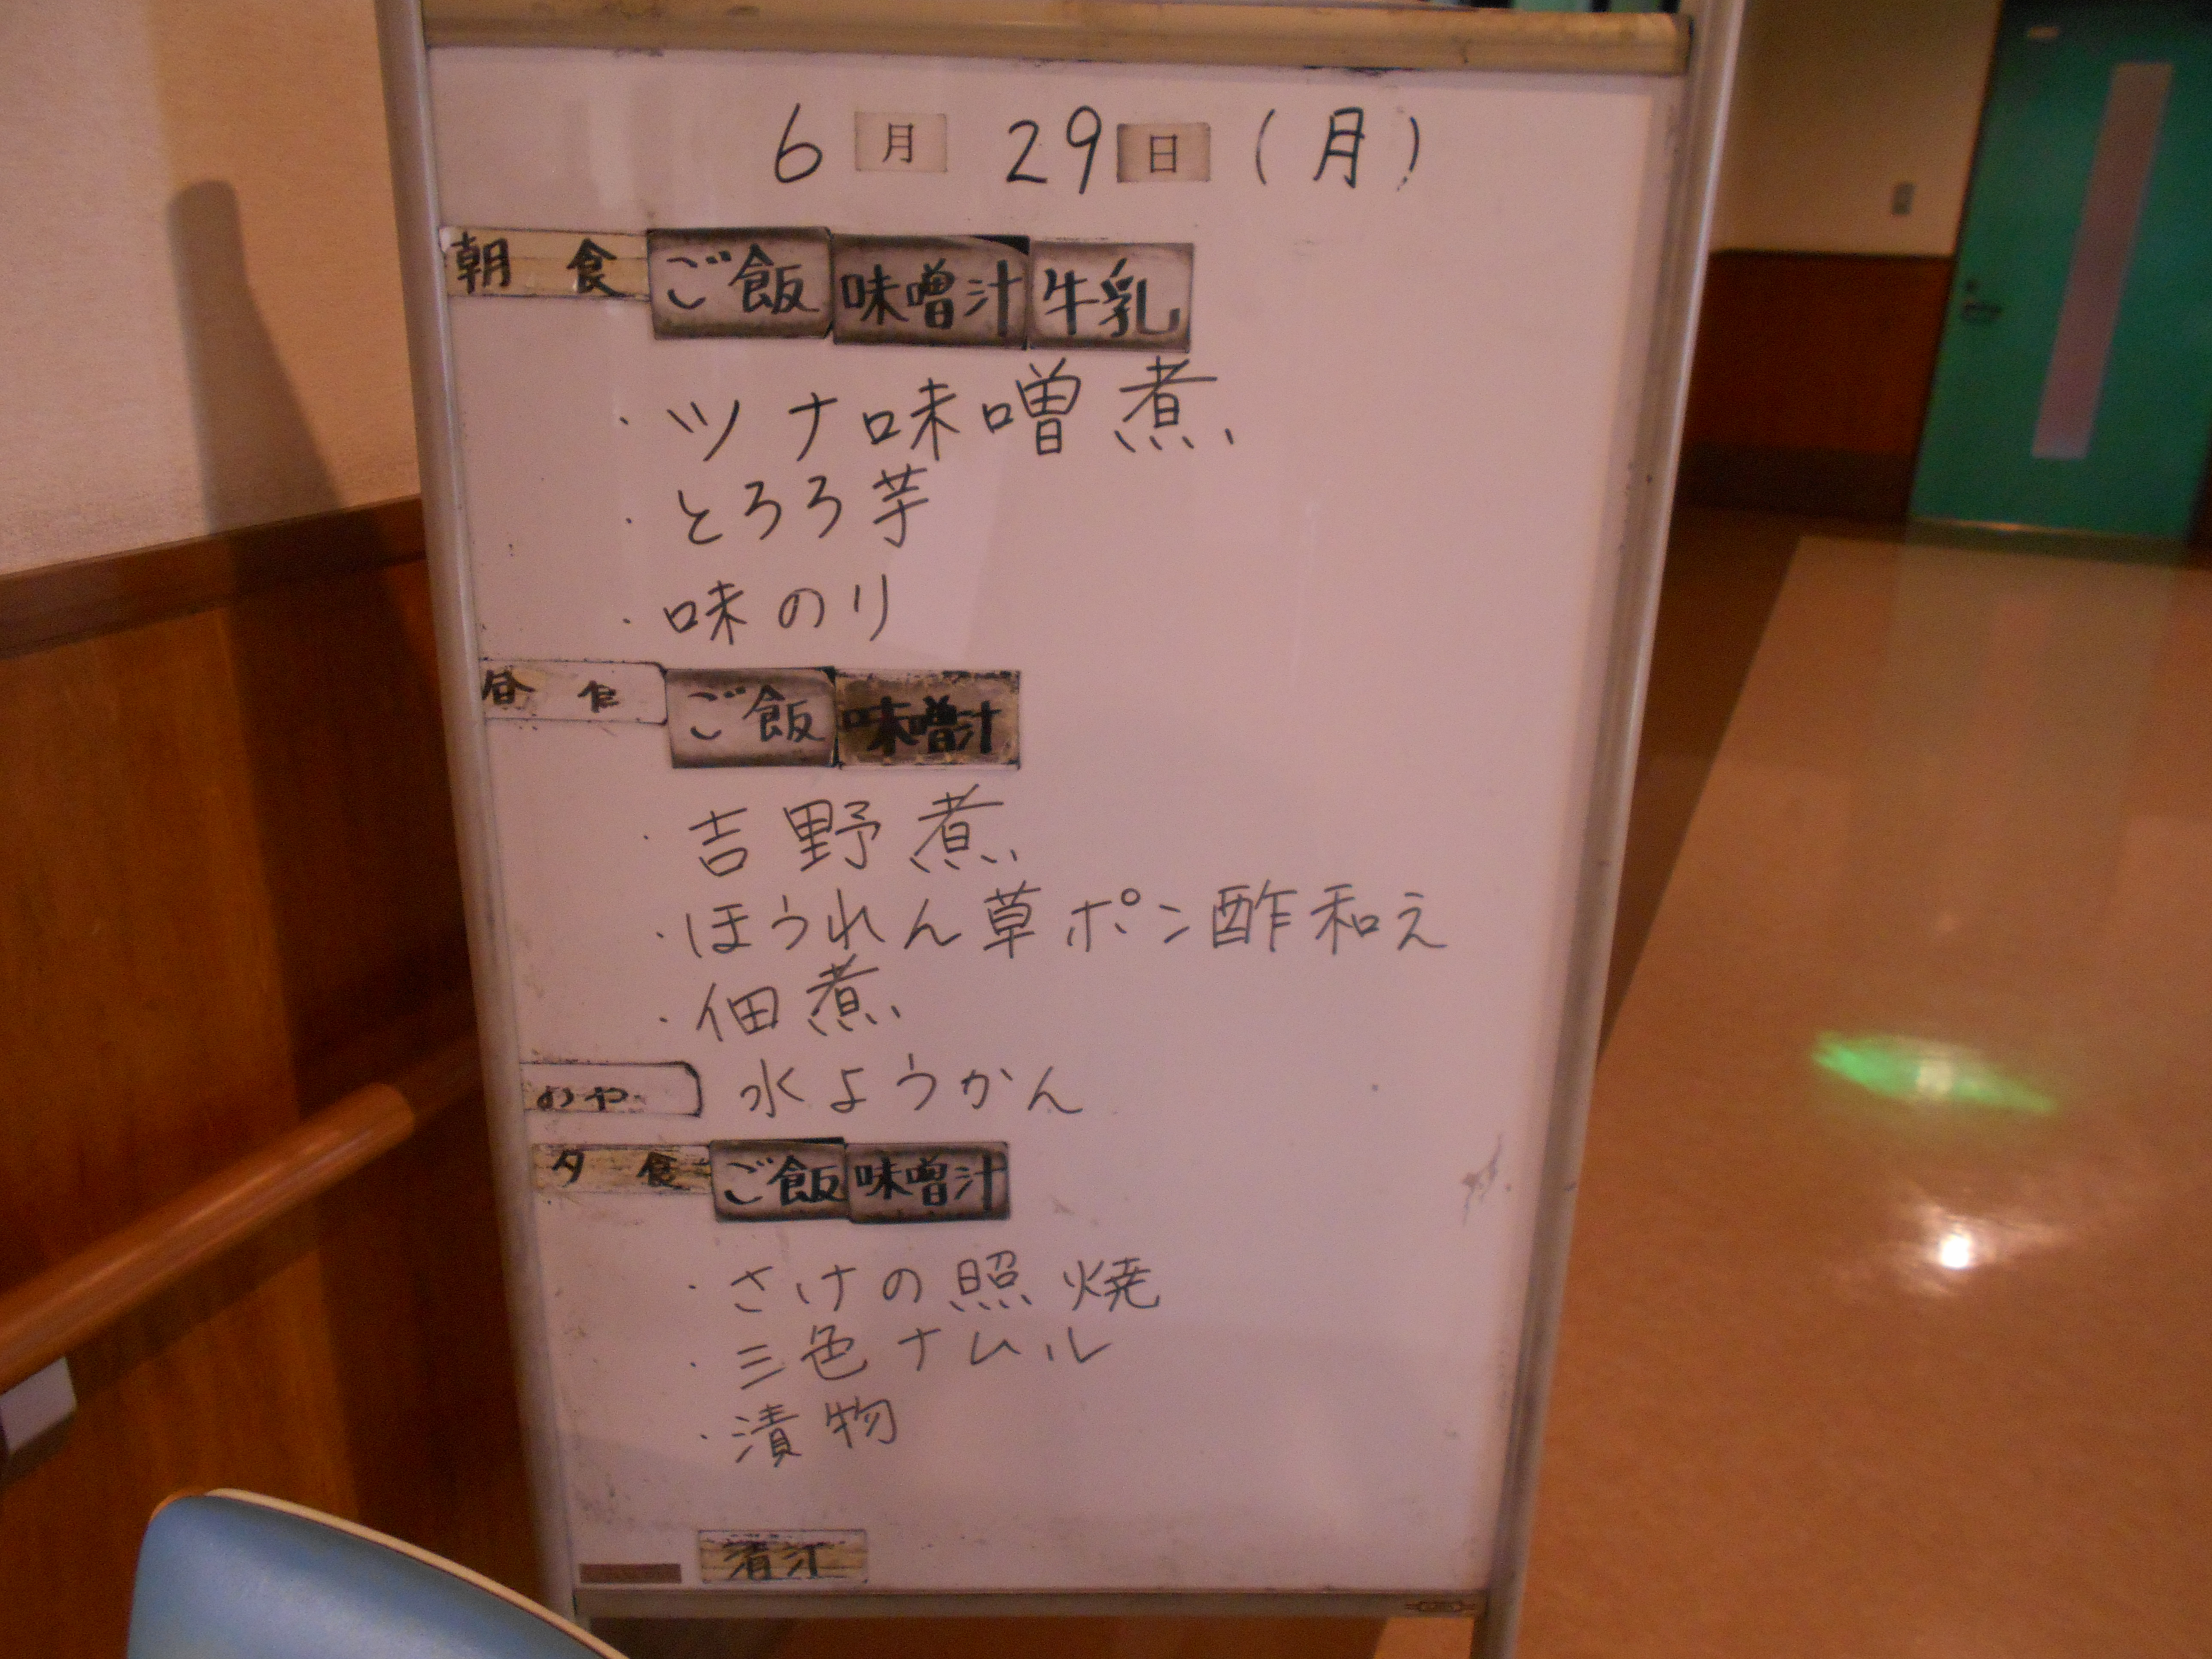 6月29日(月)
朝食 ご飯 味噌汁 牛乳
・ツナ味噌煮
・とろろ芋
・味のり
昼食 ご飯 味噌汁
・吉野煮
・ほうれん草ポン酢和え
・佃煮
おやつ 水ようかん
夕食 ご飯 味噌汁
・さけの照焼
・三色ナムル
・漬物
清汁